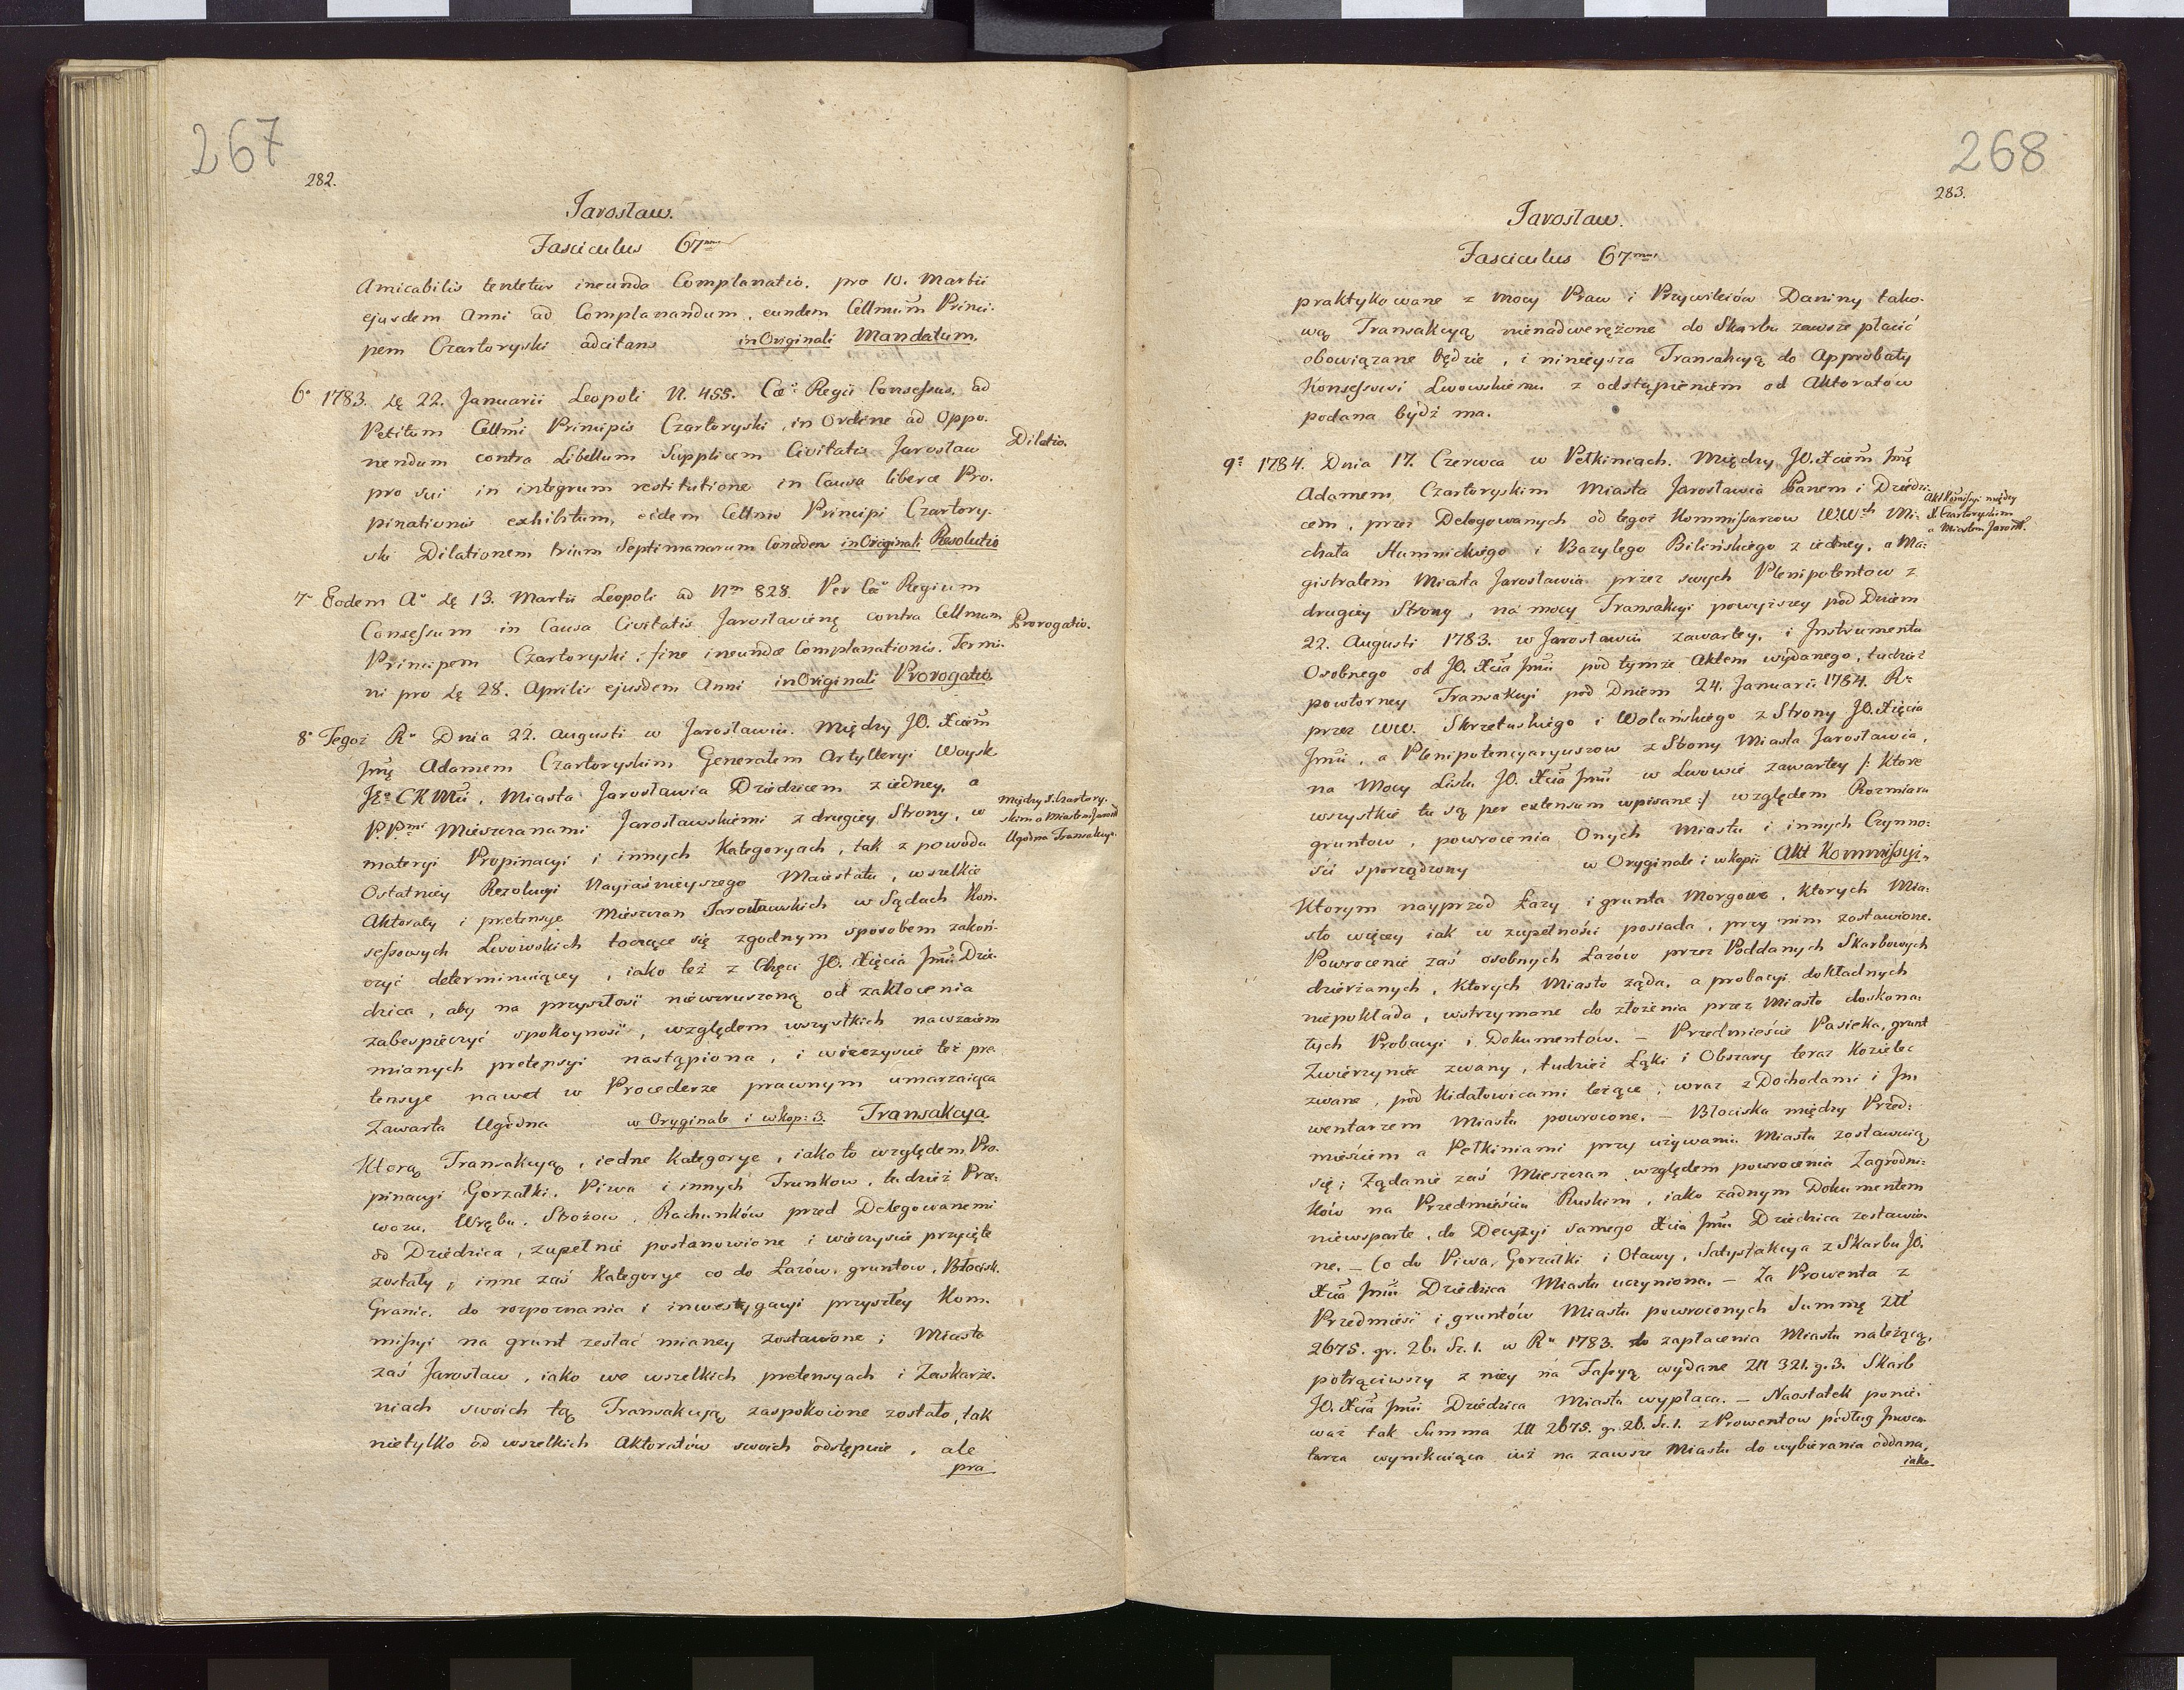 267
282.
Jarosław.
Fasciculus 67mus
Amicabilis tentetur ineunda Complanatio. pro 10. Martii
ejusdem Anni ad Complanandum, eundem Cellmum Princi-
pem Czartoryski adcitans in Originali Mandatum.
6º 1783. dę 22. Januarii Leopoli N. 455. Cæo Regii Consessus, ad
Petitum Cellmi Principis Czartoryski, in Ordine ad Oppo-
nendum contra Libellum Supplicem Civitatis Jarosław
pro sui in integrum restitutione in Causa liberæ Pro-
pinationis exhibitum, eidem Cellmo Principi Czartory-
ski Dilationem trium Septimanarum Concedens in Originali Resolutio
Dilatio.
7º Eodem Aº dę 13. Martii Leopoli ad Nm 828. Per Cæo Regium
Consessum in Causa Civitatis Jarosłaviens contra Cellmum
Principem Czartoryski, fine ineundæ Complanationis. Termi-
ni pro dę 28. Aprilis ejusdem Anni in Originali Prorogatio.
Prorogatio.
8º Tegoż Rº Dnia 22. Augusti w Jarosławiu. Między JO. Xciem
Jmę Adamem Czartoryskim Generałem Artylleryi Woysk
Jgo CK Mci, Miasta Jarosławia Dziedzicem z iedney, a
P.Pmi Mieszczanami Jarosławskiemi z drugiey Strony, w
materyi Propinacyi i innych Kategoryach, tak z powodu
Ostatniey Rezolucyi Nayiaśnieyszego Maiestatu, wszelkie
Aktoraty i pretensye Mieszczan Jarosławskich w Sądach Kon-
sessowych Lwowskich toczące się zgodnym sposobem zakoń-
czyć determinuiącey, iako też z Chęci JO. Xięcia Jmci Dzie-
dzica, aby na przyszłość niewzruszoną od zakłocenia
zabespieczyć spokoyność, względem wszystkich nawzaiem
mianych pretensyi nastąpiona, i wieczyście też pre-
tensye nawet w Procederze prawnym umarzaiąca
Zawarta Ugodna w Oryginale i w kop: 3. Transakcya
Między X. Czartory-
skim a Miastem Jarosł.
Ugodna Transakcya.
Ktorą Transakcyą, iedne Kategorye, iako to względem Pro-
pinacyi Gorzałki, Piwa i innych Trunkow, tudzież Prze-
wozu, Wrębu, Strożow, Rachunków przed Delegowanemi
od Dziedzica, zupełnie postanowione i wieczyście przyięte
zostały, inne zaś Kategorye co do Łazów, gruntow, Błocisk,
Granic, do rozpoznania i inwestygacyi przyszłey Kom-
missyi na grunt zesłać mianey zostawione; Miasto
zaś Jarosław, iako we wszelkich pretensyach i Zaskarże-
niach swoich tą Transakcyją zaspokoione zostało, tak
nietylko od wszelkich Aktoratów swoich odstępuie, ale
pra
268
283.
Jarosław.
Fasciculus 67mus
praktykowane z mocy Praw i Przywileiów Daniny tako-
wą Transakcyą nienadwerężone do Skarbu zawsze płacić
obowiązane będzie, i ninieysza Transakcyą do Approbaty
Konsessowi Lwowskiemu z odstąpieniem od Aktoratów
podana bydź ma.
9º 1784. Dnia 17. Czerwca w Pełkiniach. Między JO. Xciem Jmę
Adamem Czartoryskim Miasta Jarosławia Panem i Dziedzi-
cem, przez Delegowanych od tegoż Kommissarzow WWch Mi-
chała Humnickiego i Bazylego Bilińskiego z iedney, a Ma-
gistratem Miasta Jarosławia przez swych Plenipotentow z
drugiey Strony, na mocy Transakcyi powyższey pod Dniem
22. Augusti 1783. w Jarosławiu zawartey, i Instrumentu
Osobnego od JO. Xcia Jmci pod tymże Aktem wydanego, tudzież
powtorney Transakcyi pod Dniem 24. Januarii 1784. Rº
przez WW. Skrzetuskiego i Wolańskiego z Strony JO. Xięcia
Jmci, a Plenipotencyaryuszow z Strony Miasta Jarosławia,
na Mocy Listu JO. Xcia Jmci w Lwowie zawartey /: Ktore
wszystkie tu są per extensum wpisane :/ względem Rozmiaru
gruntow, powrocenia Onych Miastu i innych Czynno-
ści sporządzony w Oryginale i w kopii Akt Kommissyi.
Akt Kommissyi między
X. Czartoryskim
a Miastem Jarosł.
Ktorym nayprzod Łazy i grunta Morgowe, Ktorych Mia-
sto więcey iak w zupełności posiada, przy nim zostawione.
Powrocenie zaś osobnych Łazów przez Poddanych Skarbowych
dzierżanych, Ktorych Miasto żąda, a probacyi dokładnych
niepokłada, wstrzymane do złożenia przez Miasto doskona-
łych Probacyi i Dokumentów. – Przedmieście Pasieka, grunt
Zwierzyniec zwany, tudzież Łąki i Obszary teraz Kozielec
zwane, pod Kidałowicami leżące, wraz z Dochodami i In-
wentarzem Miastu powrocone. – Błociska między Przed-
mieściem a Pełkiniami przy używaniu Miasta zostawuią
się; Żądanie zaś Mieszczan względem powrocenia Zagrodni-
ków na Przedmieściu Ruskim, iako żadnym Dokumentem
niewsparte, do Decyzyi samego Xcia Jmci Dziedzica zostawio-
ne. – Co do Piwa, Gorzałki i Otawy, Satysfakcya z Skarbu JO.
Xcia Jmci Dziedzica Miastu uczyniona. – Za Prowenta z
Przedmieść i gruntów Miastu powroconych Summę Złł
2675. gr. 26. Sz. 1. w Rº 1783. do zapłacenia Miastu należącą,
potrąciwszy z niey na Fassyą wydane Złł 321. g. 3. Skarb
JO. Xcia Jmci Dziedzica Miastu wypłaca. – Naostatek ponie-
waż tak Summa Złł 2675. g. 26. Sz. 1. z Prowentow podług Inwen-
tarza wynikaiąca iuż na zawsze Miastu do wybierania oddana,
iako